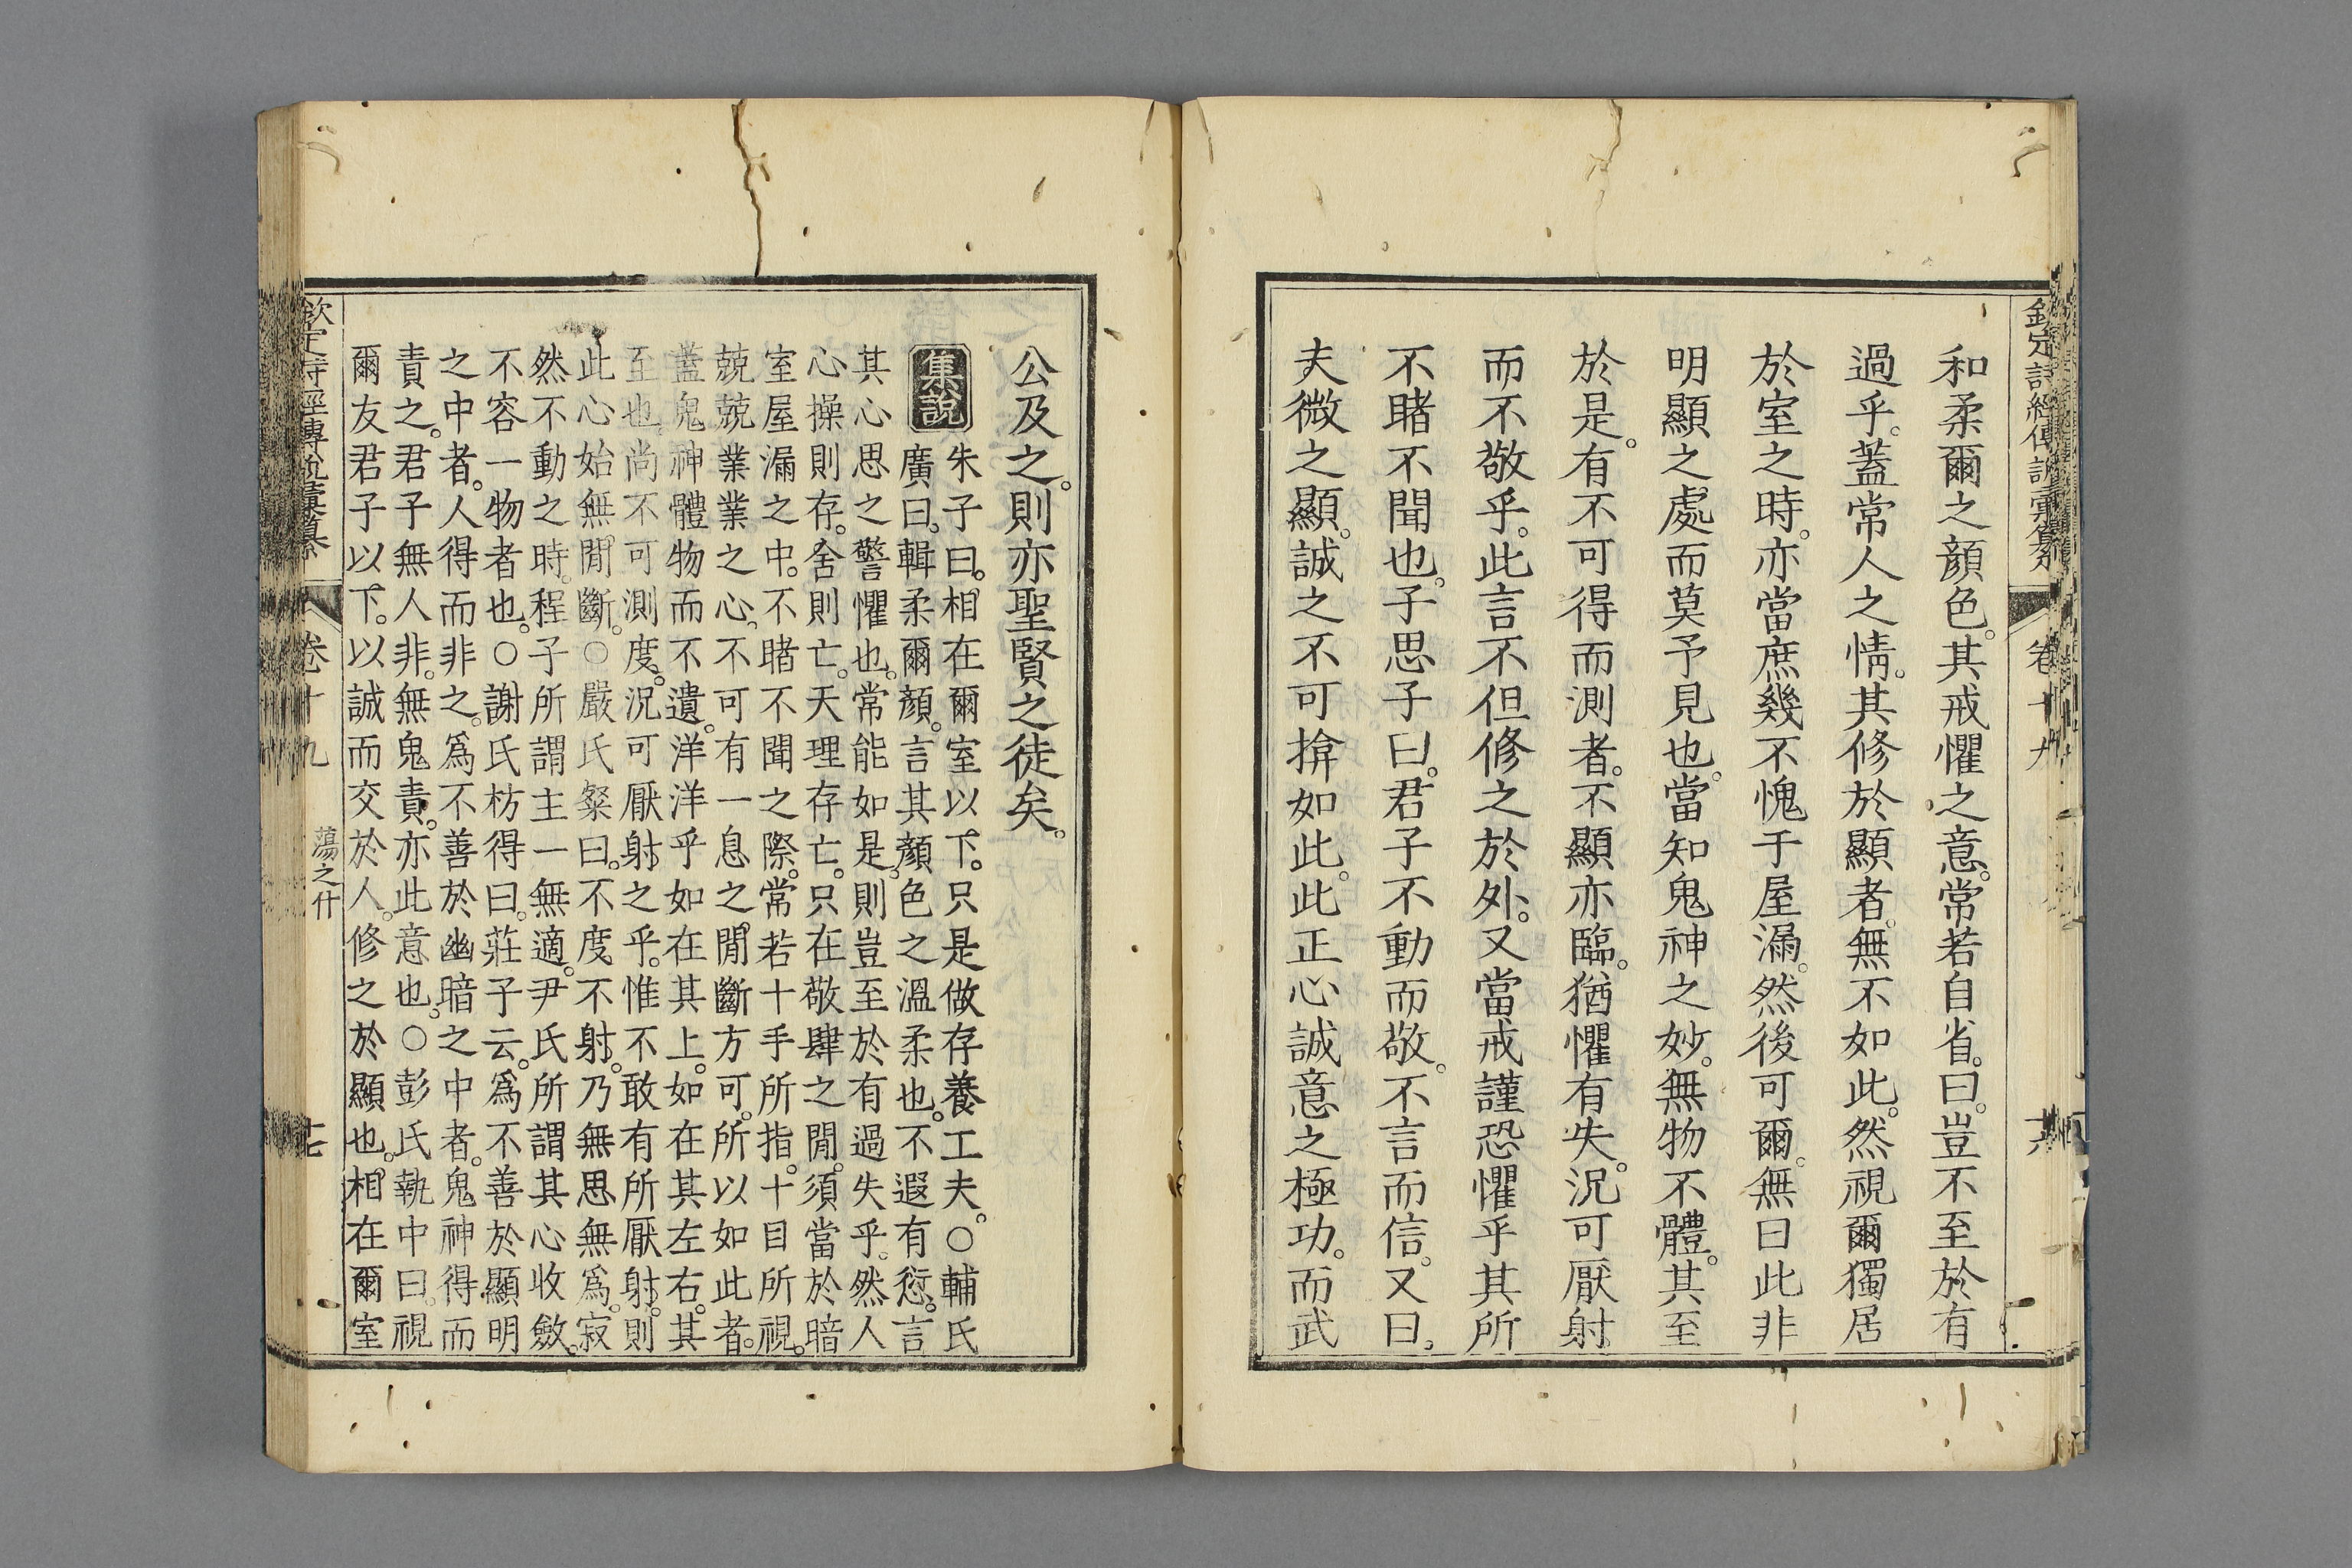 欽定詩經傳說彙纂 卷十九 十六
和柔爾之顔色。其戒懼之意。常若自省。曰。豈不至於有
過乎。蓋常人之情。其修於顯者。無不如此。然視爾獨居
於室之時。亦當庶幾不愧于屋漏。然後可爾。無曰此非
明顯之處而莫予見也。當知鬼神之妙。無物不體。其至
於是。有不可得而測者。不顯亦臨。猶懼有失。況可厭射
而不敬乎。此言不但修之於外。又當戒謹恐懼乎其所
不睹不聞也。子思子曰。君子不動而敬。不言而信。又曰。
夫微之顯。誠之不可揜如此。此正心誠意之極功。而武
公及之。則亦聖賢之徒矣。
集說
朱子曰。相在爾室以下。只是做存養工夫。○輔氏
廣曰。輯柔爾顔。言其顔色之溫柔也。不遐有愆。言
其心思之警懼也。常能如是。則豈至於有過失乎。然人
心操則存。舍則亡。天理存亡。只在敬肆之閒。須當於暗
室屋漏之中。不睹不聞之際。常若十手所指。十目所視。
兢兢業業之心。不可有一息之閒斷方可。所以如此者。
蓋鬼神體物而不遺。洋洋乎如在其上。如在其左右。其
至也。尚不可測度。況可厭射之乎。惟不敢有所厭射。則
此心始無閒斷。○嚴氏粲曰。不度不射。乃無思無爲。寂
然不動之時。程子所謂主一無適。尹氏所謂其心收斂。
不容一物者也。○謝氏枋得曰。莊子云。爲不善於顯明
之中者。人得而非之。爲不善於幽暗之中者。鬼神得而
責之。君子無人非。無鬼責。亦此意也。○彭氏執中曰。視
爾友君子以下。以誠而交於人。修之於顯也。相在爾室
欽定詩經傳說彙纂 卷十九 蕩之什 十七